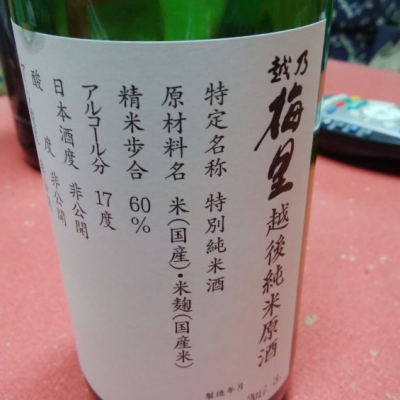 越乃
梅里
越後純米原酒
特定名称 特別純米酒
原材料名 米(国産)・米麹(国産米)
精米歩合 60%
アルコール分 17度
日本酒度 非公開
酸度 非公開
製造年月